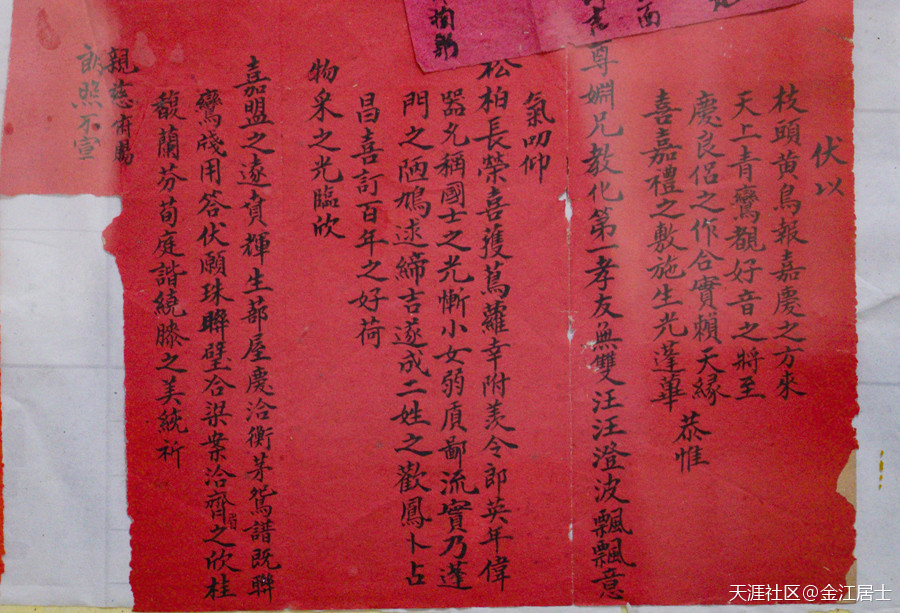 伏以
枝頭黃鳥報嘉慶之方來
天上青鸞覩好音之將至
慶良侶之作合實賴天緣
喜嘉禮之敷施生光蓬蓽
恭惟
尊姻兄教化第一孝友無雙汪汪澄波飄飄意
氣叨仰
松柏長榮喜獲蔦蘿幸附羡令郎英年偉
器允稱國士之光慚小女弱質鄙流實乃蓬
門之陋鳩逑締吉遂成二姓之歡鳳卜占
昌喜訂百年之好荷
物采之光臨欣
嘉盟之遂賁輝生蔀屋慶洽衡茅鴛譜既聯
鸞牋用答伏願珠聯璧合梁案洽齊眉之欣桂
馥蘭芬荀庭諧繞膝之美統祈
親慈俯賜
朗照不宣
天涯社区@金江居士